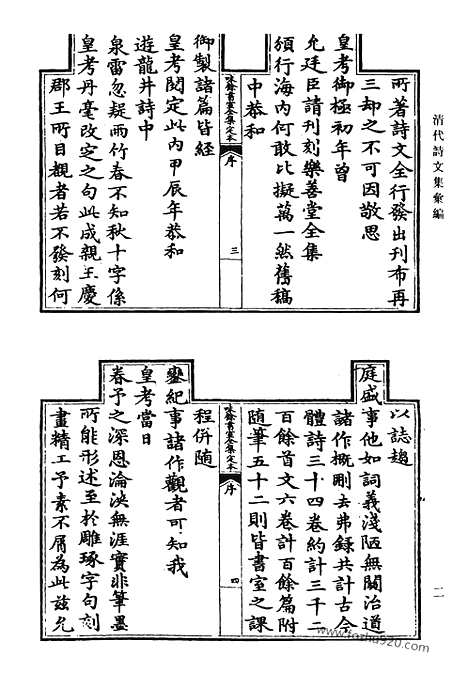 清代詩文集彙編
所著詩文全行發出刊布再
三却之不可因敬思
皇考御極初年曾
允廷臣請刊刻樂善堂全集
頒行海内何敢比擬萬一然舊稿
中恭和
味餘書室全集定本
序
三
御製諸篇皆經
皇考閱定此内甲辰年恭和
遊龍井詩中
泉雷忽疑雨竹春不知秋十字係
皇考丹毫改定之句此成親王慶
郡王所目覩者若不發刻何
二
以誌趨
庭盛事他如詞義淺陋無關治道
諸作概刪去弗錄共計古今
體詩三十四卷約計三千二
百餘首文六卷計百餘篇附
隨筆五十二則皆書室之課
味餘書室全集定本
序
四
程併隨
鑾紀事諸作觀者可知我
皇考當日
眷予之深恩淪浹無涯實非筆墨
所能形述至於雕琢字句刻
畫精工予素不屑為此茲允